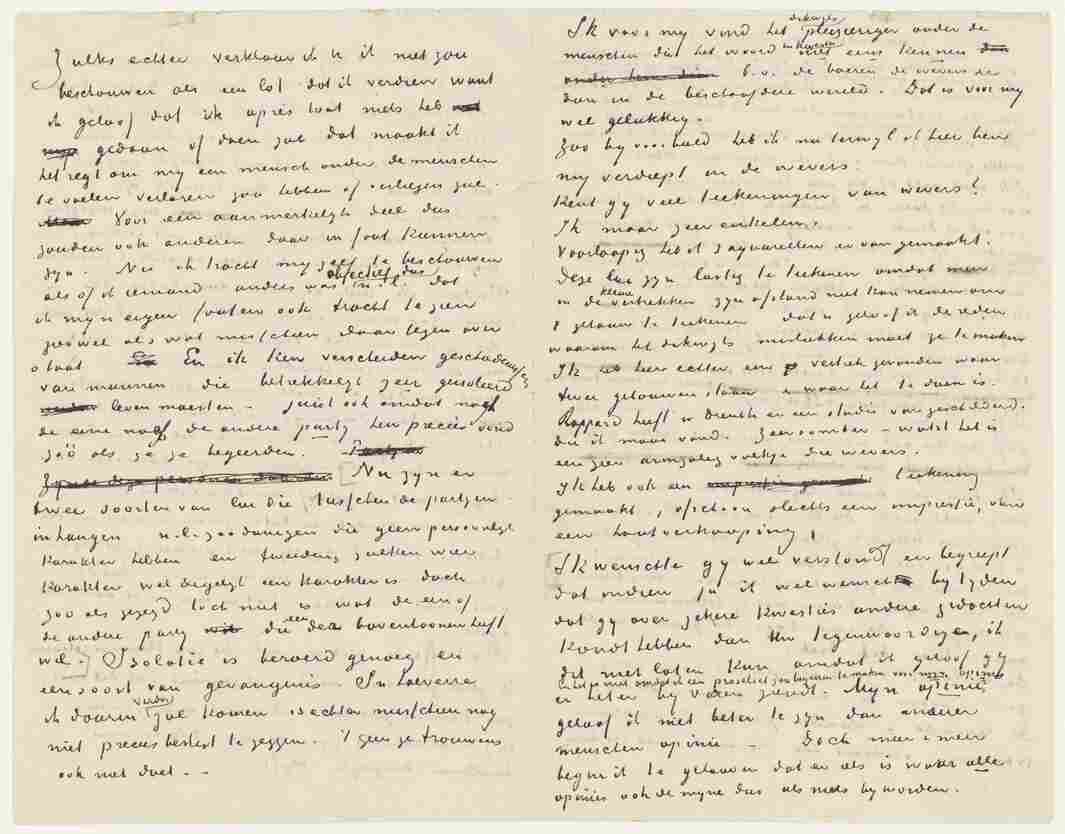 Zulks echter verklaar ik u ik niet zou
beschouwen als een lot dat ik verdien want
ik geloof dat ik après tout niets heb
gedaan of doen zal dat maakt ik
het regt om my een mensch onder de menschen
te voelen verloren zou hebben of verliezen zal.
Voor een aanmerkelyk deel dus
zouden ook anderen daar in fout kunnen
zyn. Nu ik tracht my zelf te beschouwen
als of ik iemand anders was objectief dus n.l. dat
ik myn eigen fouten ook tracht te zien
zoowel als wat misschien daar tegen over
staat En ik ken verscheiden geschiedenissen
van mannen die betrekkelyk zeer geisoleerd
leven moesten – juist ook omdat noch
de eene noch de andere party hen precies vond
zóó als ze ze begeerden.
Nu zyn er
twee soorten van lui die tusschen de partyen
inhangen n.l. zoodanigen die geen persoonlyk
karakter hebben en tweedens zulken wier
karakter wel degelyk een karakter is doch
zoo als gezegd toch niet is wat de een of
de andere party die een bovenloonen heeft
wil. Isolatie is beroerd genoeg en
een soort van gevangenis. In hoeverre
ik daarin verder zal komen is echter misschien nog
niet precies beslist te zeggen. 't geen ge trouwens
ook niet doet. –
Ik voor my vind het dikwyls pleizieriger onder de
menschen die het woord in kwestie niet eens kennen
b.v. de boeren de wevers
dan in de beschaafdere wereld. Dat is voor my
wel gelukkig.
Zoo by voorbeeld heb ik nu terwyl ik hier ben
my verdiept in de wevers.
Kent gy veel teekeningen van wevers?
Ik maar zeer enkelen.
Voorloopig heb ik 3 aquarellen er van gemaakt.
Deze lui zyn lastig te teekenen omdat men
in de kleine vertrekken zyn afstand niet kan nemen om
't getouw te teekenen dat is geloof ik de reden
waarom het dikwyls mislukken moet ze te maken
Ik heb hier echter een vertrek gevonden waar
twee getouwen staan en waar het te doen is.
Rappard heeft in Drenthe er een studie van geschilderd.
die ik mooi vond. Zeer somber – want het is
een zeer armzalig volkje die wevers.
Ik heb ook een teekening
gemaakt, ofschoon slechts een impressie, van
een houtverkooping.
Ik wenschte gy wel verstondt en begreept
dat indien ja ik wel wensch by tyden
dat gy over zekere kwesties andere gedachten
kondt hebben dan Uw tegenwoordige, ik
dit niet laten kan omdat ik geloof gy
en het is niet omdat ik een proseliet zou begeeren te maken voor myn opinie
er beter by varen zoudt. Myn opinie
geloof ik niet beter te zyn dan anderer
menschen opinie – Doch meer & meer
begin ik te gelooven dat er iets is waar alle
opinies ook de myne dus als niets by worden.